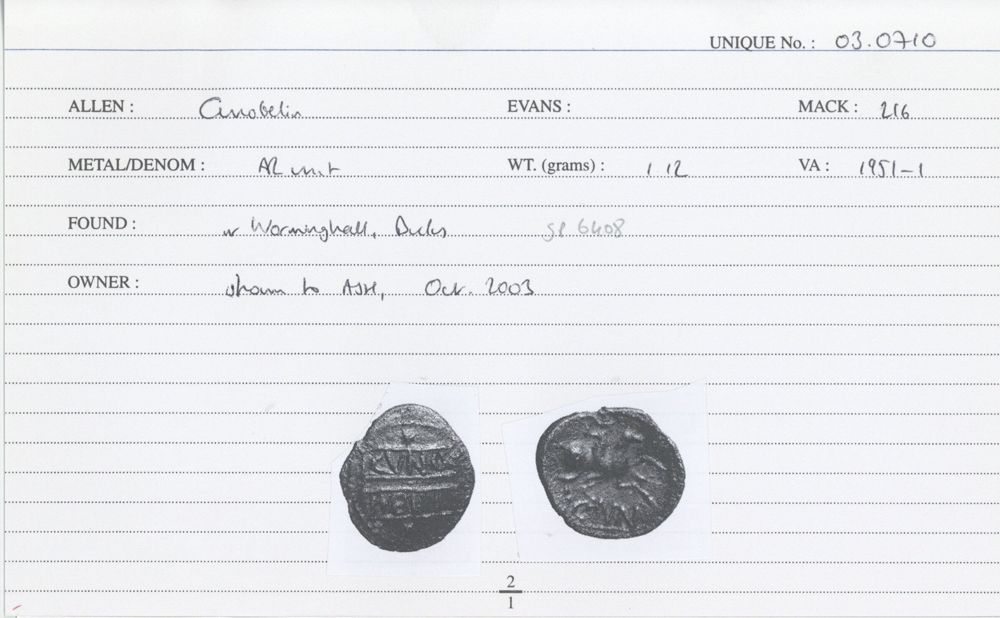 UNIQUE No. : 03.0710
ALLEN : Cunobelin EVANS : MACK : 216
METAL/DENOM : AR unit WT. (grams) : 1.12 VA : 1951-1
FOUND : nr Worminghall, Bucks SP 6408
OWNER : shown to ASH, Oct. 2003
CVNO
BELI
CVN
2
1